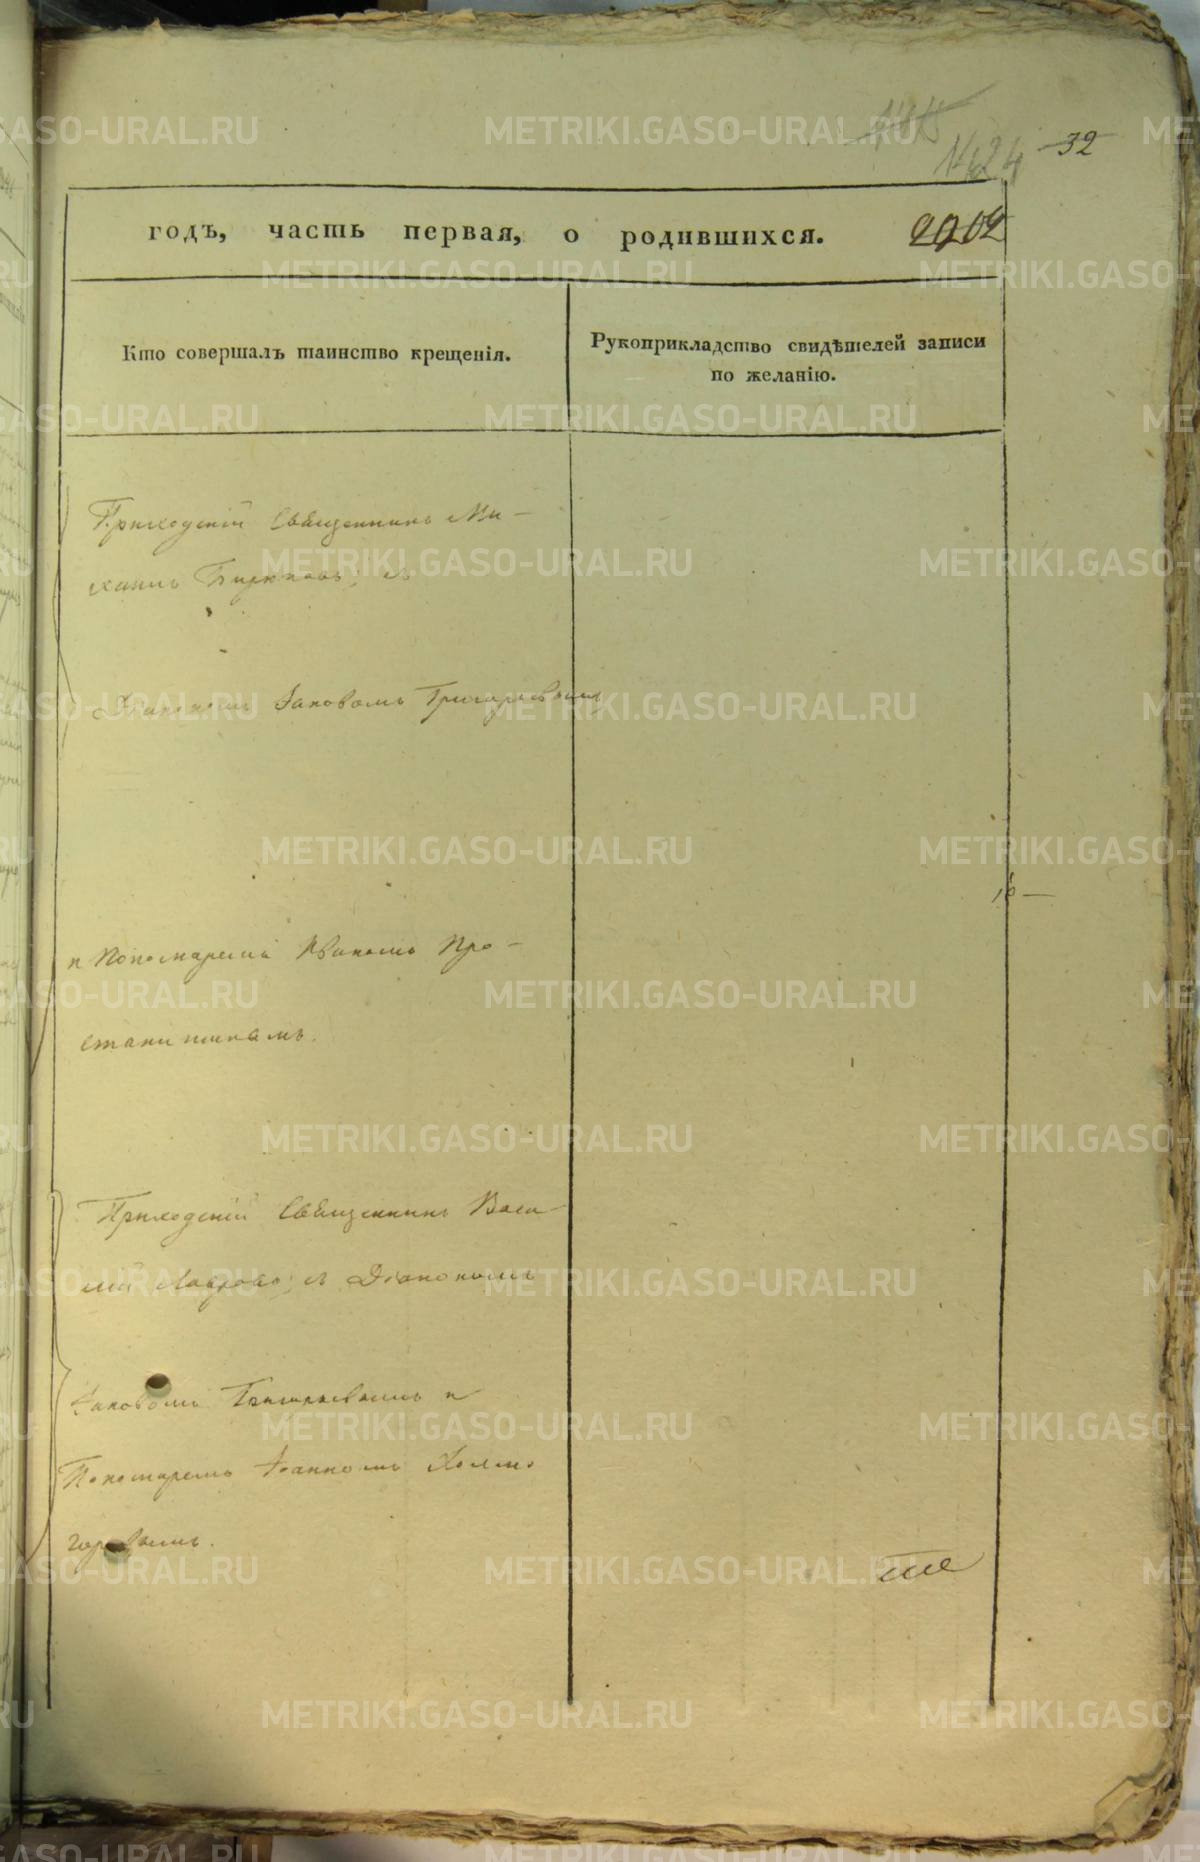 1424
32
годъ, часть первая, о родившихся.
Кто совершалъ таинство крещенія.
Рукоприкладство свидѣтелей записи
по желанію.
Приходскій Священникъ Ми-
хаилъ Бирюковъ, съ
Діакономъ Іаковомъ Григорьевымъ
и Пономаремъ Иваномъ Про-
Приходскій Священникъ Васи-
лій Лавровъ, съ Діакономъ
Іаковомъ Григорьевымъ и
Пономаремъ Іоанномъ Холмо
горовымъ.
METRIKI.GASO-URAL.RU